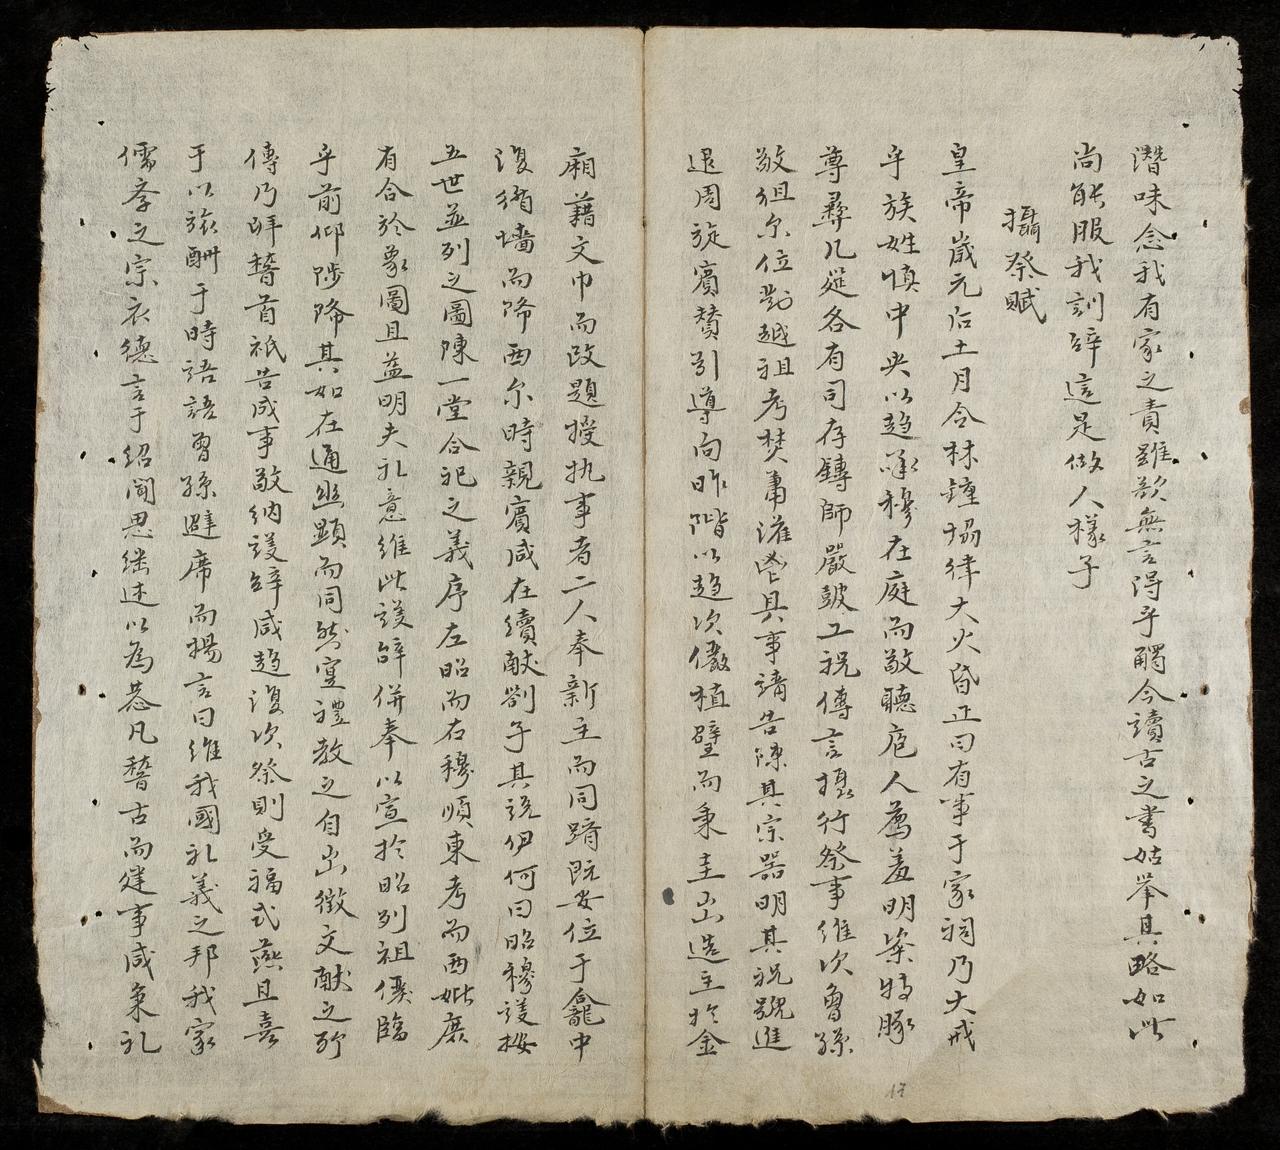 潛味念我有家之責雖欲無言得乎斶今讀古之書姑举其略如此
尚能服我訓辞這是做人樣子
攝祭賦
皇帝嵗元后土月合林鐘協律大火昏正曰有事于家祠乃大戒
乎族姓慎中央以趋承穆在庭而敬聽庖人薦羞明粢特豚
尊彝几筵各有司存鎛師嚴鼓工祝傳言攝行祭事維次曾孫
敬徂尔位对越祖考焚蕭灌鬯具事請告陳其宗器明其祝號進
退周旋賓贊引導向昨階以趋次儼植璧而秉圭出送主於金
廂藉文巾而改題授执事者二人奉新主而同躋既安位于龕中
復循墻而降西尔時親賓咸在續献劄子其說伊何曰昭穆議按
五世並列之圖陳一堂合祀之義序左昭而右穆順東考而西妣庶
有合於象圖且益明夫礼意維此議辭併奉以宣於昭列祖僾臨
乎前仰陟降其如在通幽顯而同然寔禮教之自出徵文献之所
傳乃拜稽首祇告咸事敬納議辞咸趋復次祭則受福式燕且喜
于以旅酬于時語語曾孫避席而揚言曰維我國礼義之邦我家
儒孝之宗衣德言于紹聞思继述以為恭凡稽古而建事咸秉礼